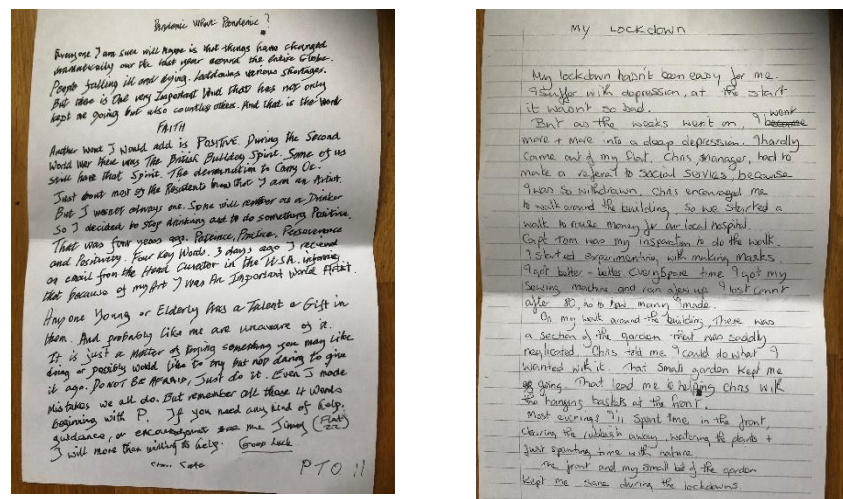 Pandemic What Pandemic?
Everyone I am sure will agree is that things have changed
dramatically over the last year around the entire Globe.
People falling ill and dying. Lockdowns various shortages.
But there is One very Important Word that has not only
kept me going but also countless others. And that is the word
FAITH
Another word I would add is POSITIVE. During the Second
World War there was The British Bulldog Spirit. Some of us
still have that Spirit. The determination to Carry On.
Just about most of the Residents know that I am an Artist.
But I was not always one. Some will remember as a Drinker
So I decided to stop drinking and to do something Positive.
That was four years ago. Patience, Practice, Perseverance
and Positivity. Four Key Words. 3 days ago I received
an email from the Head Curator in the U.S.A. informing
that because of my Art I was An Important World Artist.
Any one Young or Elderly has a Talent or Gift in
them. And probably like me are unaware of it.
It is just a matter of trying something you may like
doing or possibly would like to try but not daring to give
it ago. DO NOT BE AFRAID, Just do it. Even I made
Mistakes we all do. But remember all those 4 words
beginning with P. If you need any kind of help,
guidance, or encouragement see me Jimmy (Flat 22)
I will more than willing to help. Good Luck
PTO !!
MY LOCKDOWN
My lockdown hasn't been easy for me.
I suffer with depression, at the start
it wasn't so bad.
But as the weeks went on, I went
more + more into a deep depression. I hardly
came out of my flat. Chris, manager, had to
make a referal to Social Servies, because
I was so withdrawn. Chris encouraged me
to walk around the building, so we started a
walk to raise money for our local hospital.
Capt Tom was my insparation to do the walk.
I started experimenting with making masks.
I got better + better. Every spare time I got my
sewing machine and ran afew up. I lost count
after 80, as to how many I made.
On my walk around the building, There was
a section of the garden that was saddly
neglicated. Chris told me I could do what I
wanted with it. That small garden kept me
going. That lead me to helping Chris with
the hanging baskets at the front.
Most evenings I'll spent time in the front,
clearing the rubbish away, watering the plants +
Just spending time with nature.
The front and my small bit of the garden
kept me sane during the lockdowns.